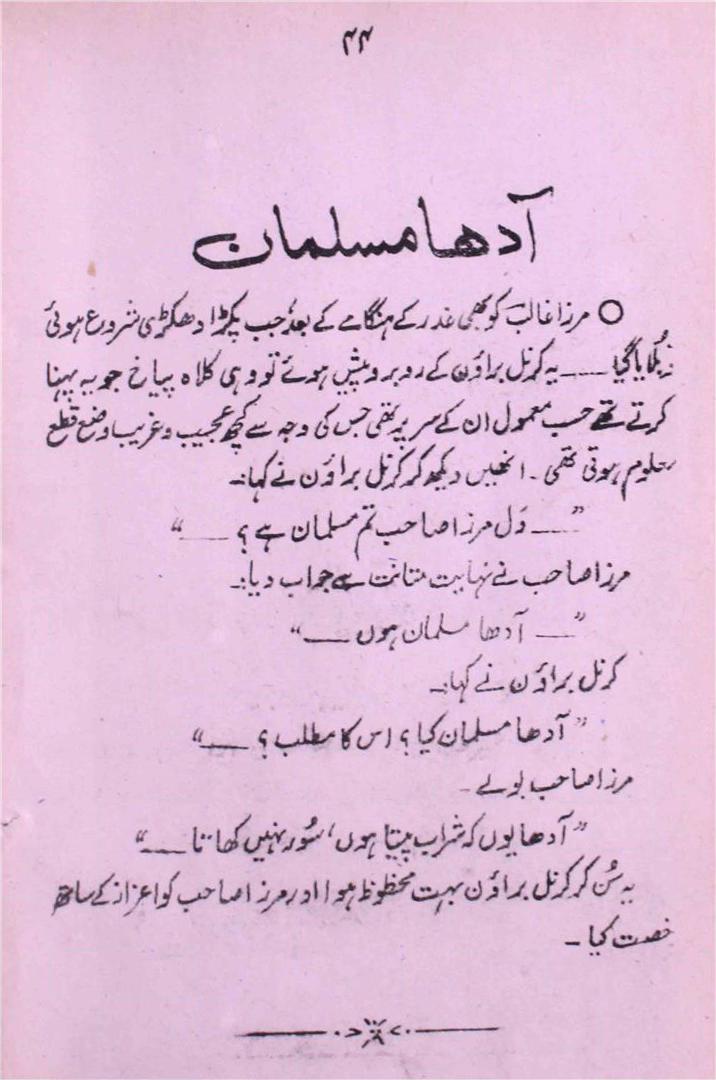 ۴۴
آدھا مسلمان
○ مرزا غالبؔ کو بھی غدر کے ہنگامے کے بعد جب پکڑا دھکڑی شروع ہوئی
بُلایا گیا ــــ یہ کرنل براؤن کے روبرو پیش ہوئے تو وہی کلاہ پیاخ جو یہ پہنا
کرتے تھے حسب معمول ان کے سر پر تھی جس کی وجہ سے کچھ عجیب و غریب وضع قطع
معلوم ہوتی تھی ۔ انھیں دیکھ کر کرنل براؤن نے کہا:۔
"ــــ وَل مرزا صاحب تم مسلمان ہے ؟ ــــ"
مرزا صاحب نے نہایت متانت سے جواب دیا:۔
"ــــ آدھا مسلمان ہوں ــــ"
کرنل براؤن نے کہا:۔
"آدھا مسلمان کیا ؟ اس کا مطلب ؟ ــــ"
مرزا صاحب بولے ۔
"آدھا یوں کہ شراب پیتا ہوں، سُور نہیں کھاتا ــــ"
یہ سُن کر کرنل براؤن بہت محظوظ ہوا اور مرزا صاحب کو اعزاز کے ساتھ
خصت کیا ۔